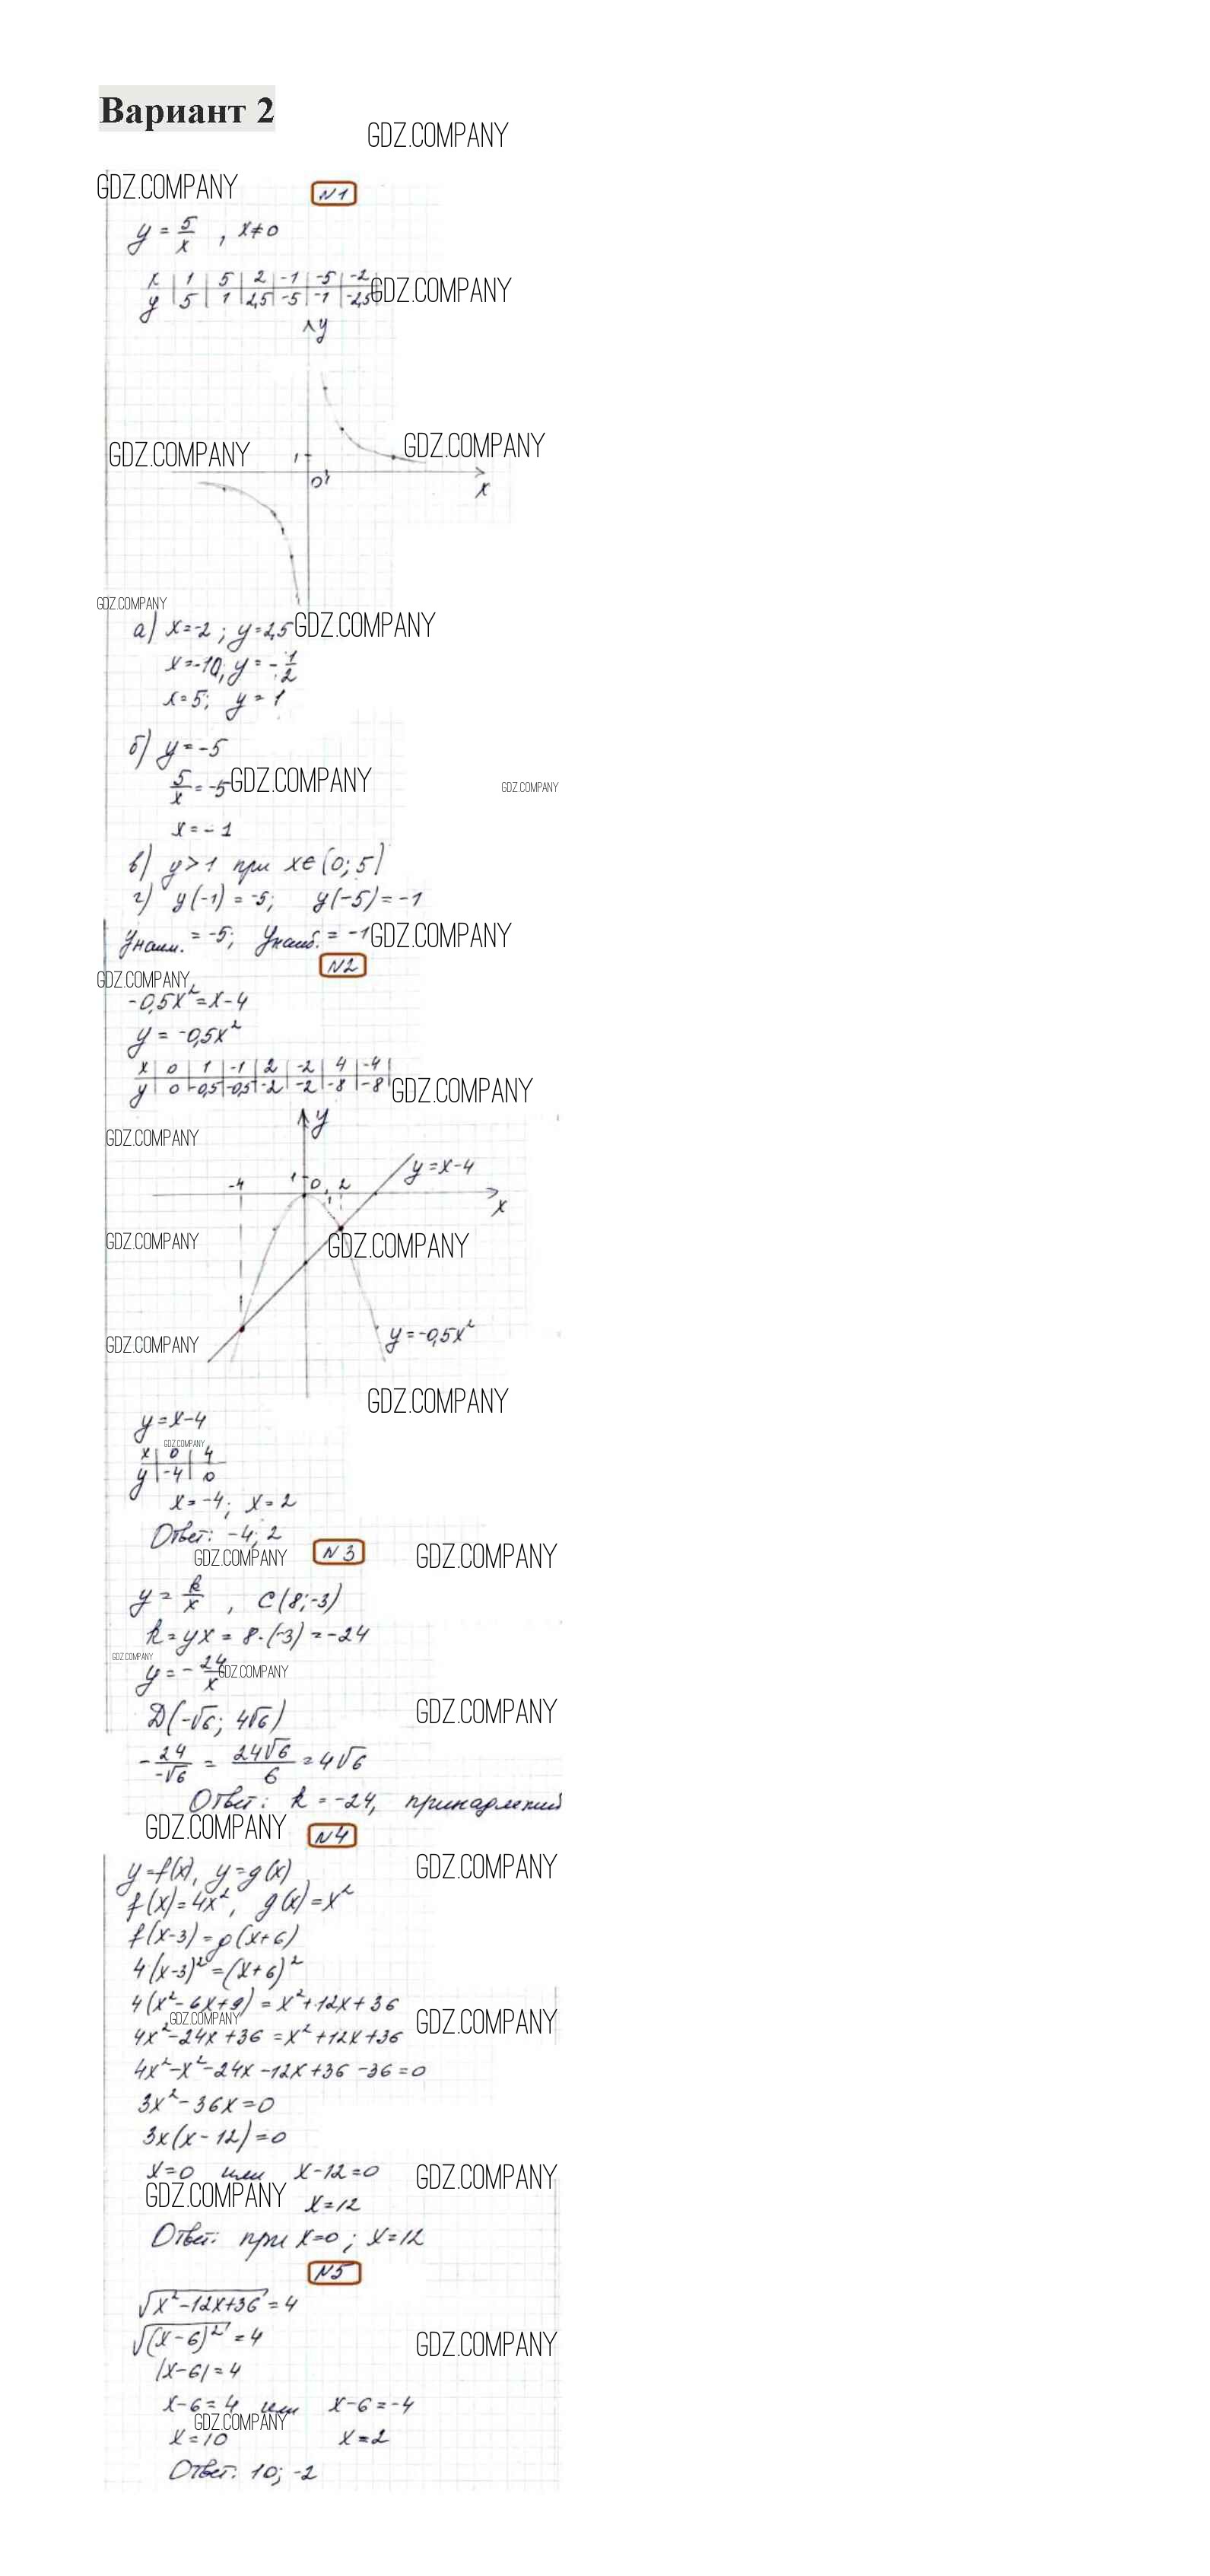 Вариант 2
GDZ.COMPANY
GDZ.COMPANY
N1
y = 5/x , x≠0
x | 1 | 5 | 2 | -1 | -5 | -2
y | 5 | 1 | 2,5 | -5 | -1 | -2,5
GDZ.COMPANY
y
GDZ.COMPANY
GDZ.COMPANY
1
0 1
x
GDZ.COMPANY
а) x=-2 ; y=2,5
GDZ.COMPANY
x=-10; y = -1/2
x=5; y = 1
б) y = -5
5/x = -5
GDZ.COMPANY
GDZ.COMPANY
x = -1
в) y>1 при x∈(0; 5)
г) y(-1) = -5; y(-5) = -1
yнаим. = -5; yнаиб. = -1
GDZ.COMPANY
N2
GDZ.COMPANY
-0,5x²=x-4
y = -0,5x²
x | 0 | 1 | -1 | 2 | -2 | 4 | -4
y | 0 | -0,5 | -0,5 | -2 | -2 | -8 | -8
GDZ.COMPANY
y
GDZ.COMPANY
y=x-4
-4 1 0 1 2
x
GDZ.COMPANY
GDZ.COMPANY
GDZ.COMPANY
y=-0,5x²
GDZ.COMPANY
y=x-4
GDZ.COMPANY
x | 0 | 4
y | -4 | 0
x=-4; x=2
Ответ: -4; 2
GDZ.COMPANY
N3
GDZ.COMPANY
y = k/x , C(8;-3)
k=yx = 8·(-3) = -24
GDZ.COMPANY
y = -24/x
GDZ.COMPANY
D(-√6; 4√6)
GDZ.COMPANY
-24/-√6 = 24√6/6 = 4√6
Ответ: k = -24,
GDZ.COMPANY
N4
GDZ.COMPANY
y=f(x), y=g(x)
f(x)=4x², g(x)=x²
f(x-3)=g(x+6)
4(x-3)²=(x+6)²
4(x²-6x+9) = x²+12x+36
GDZ.COMPANY
GDZ.COMPANY
4x²-24x+36=x²+12x+36
4x²-x²-24x-12x+36-36=0
3x²-36x=0
3x(x-12)=0
x=0 или x-12=0
GDZ.COMPANY
GDZ.COMPANY
x=12
Ответ: при x=0; x=12
N5
√x²-12x+36 = 4
√(x-6)² = 4
GDZ.COMPANY
|x-6|=4
x-6=4 или x-6=-4
GDZ.COMPANY
x=10 x=2
Ответ: 10; -2